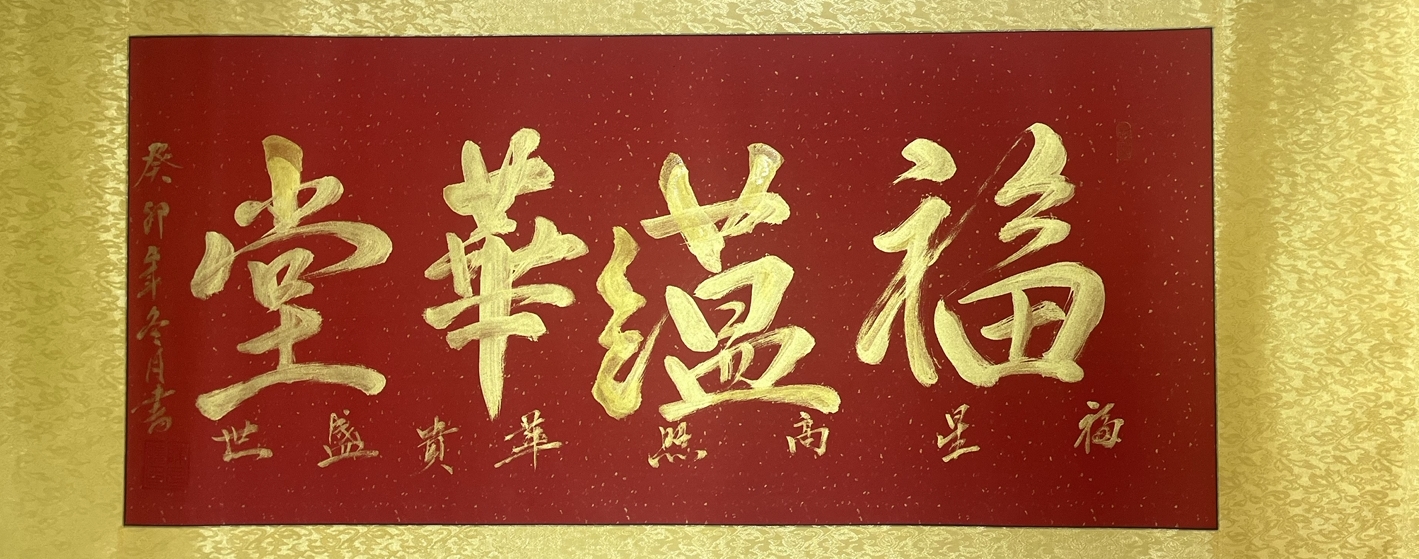 福蕴華堂
福星高照華贵盛世
癸卯年冬月書